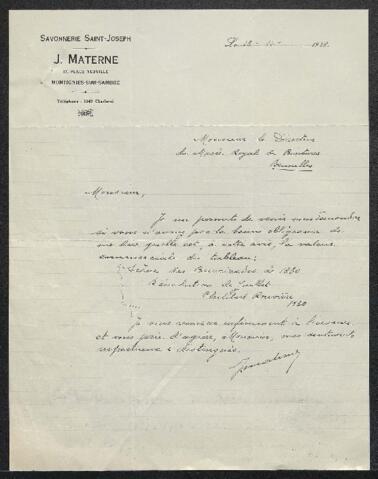 SAVONNERIE SAINT-JOSEPH
J. MATERNE
PLACE NEUVILLE
MONTIGNIES-SUR-SAMBRE
Téléphone : 1342 Charleroi
Le 1928
Monsieur le Directeur
du Musée Royal de Peintures
Bruxelles
Monsieur,
Je me permets de venir vous demander
si vous n'auriez pas la bonne obligeance de
me dire quelle est, à votre avis, la valeur
commerciale du tableau:
Scène des Barricades de 1830
Révolution de Juillet
Philibert Rouvière
Je vous remercie infiniment à l'avance
et vous prie d'agréer, Monsieur, mes sentiments
respectueux & distingués.
JMaterne